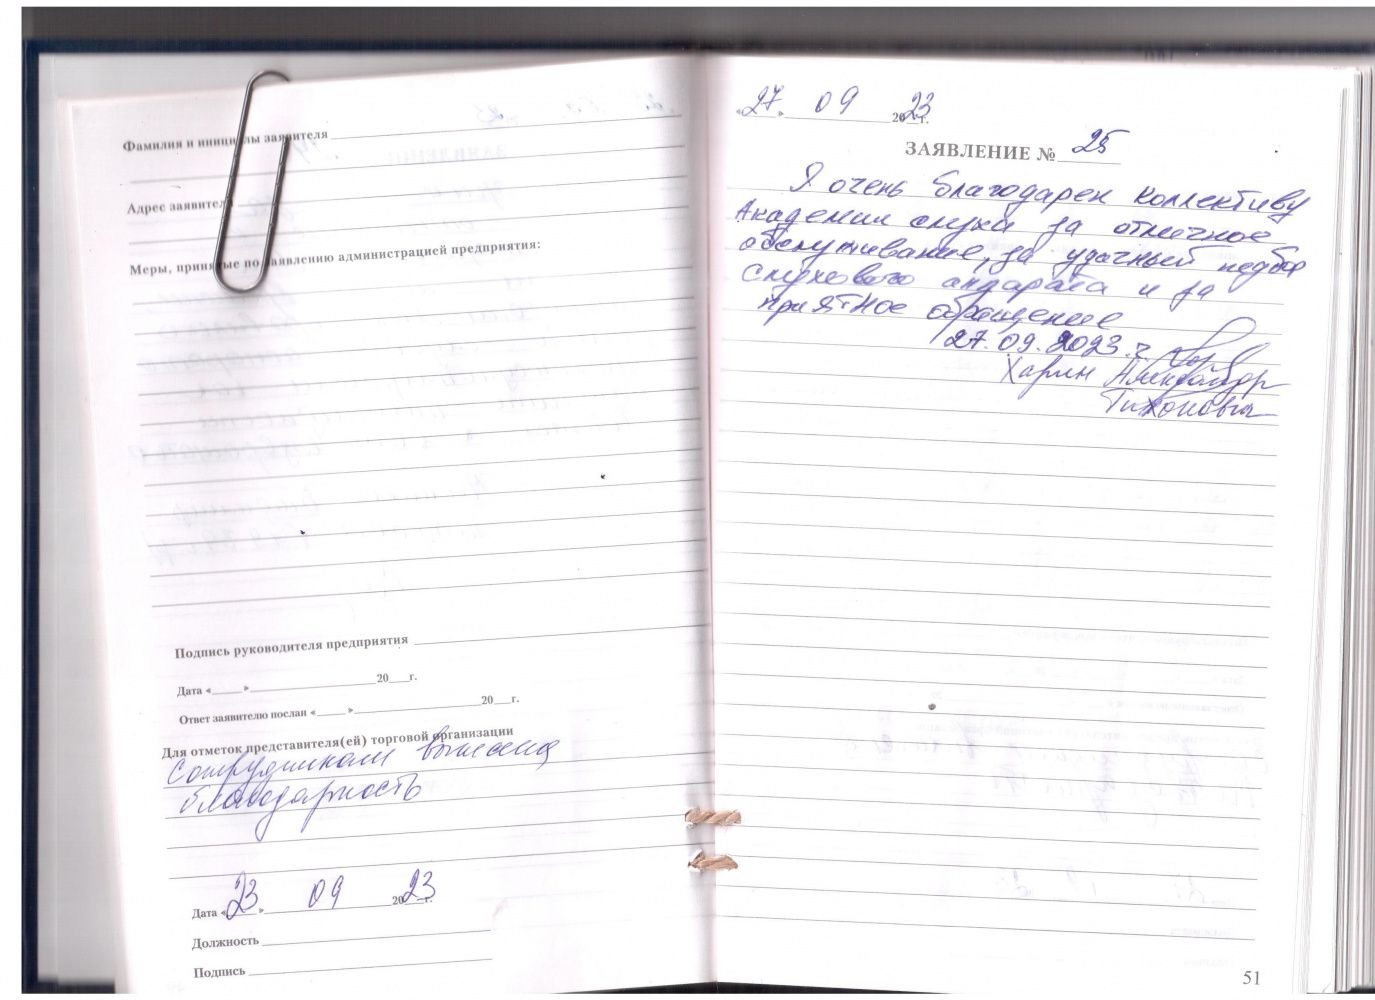 Фамилия и инициалы заявителя
Адрес заявителя
Меры, принятые по заявлению администрацией предприятия:
Подпись руководителя предприятия
Дата «____»____________20___г.
Ответ заявителю послан «____»____________20___г.
Для отметок представителя(ей) торговой организации
Сотрудникам вынесена
благодарность
Дата «23» 09 2023г.
Должность
Подпись
«27» 09 2023г.
ЗАЯВЛЕНИЕ № 25
Я очень благодарен коллективу
Академии слуха за отличное
обслуживание, за удачный подбор
слухового аппарата и за
приятное обращение
27.09.2023 г.
Харин Александр
Тихонович
51